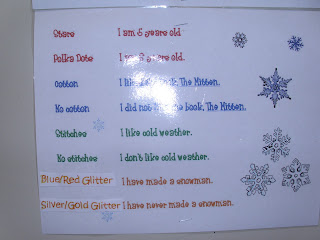 Stars I am 5 years old
Polka Dots I am 6 years old.
Cotton I liked the book, The Mitten.
No cotton I did not like the book, The Mitten.
Stitches I like cold weather.
No stitches I don't like cold weather.
Blue/Red Glitter I have made a snowman.
Silver/Gold Glitter I have never made a snowman.